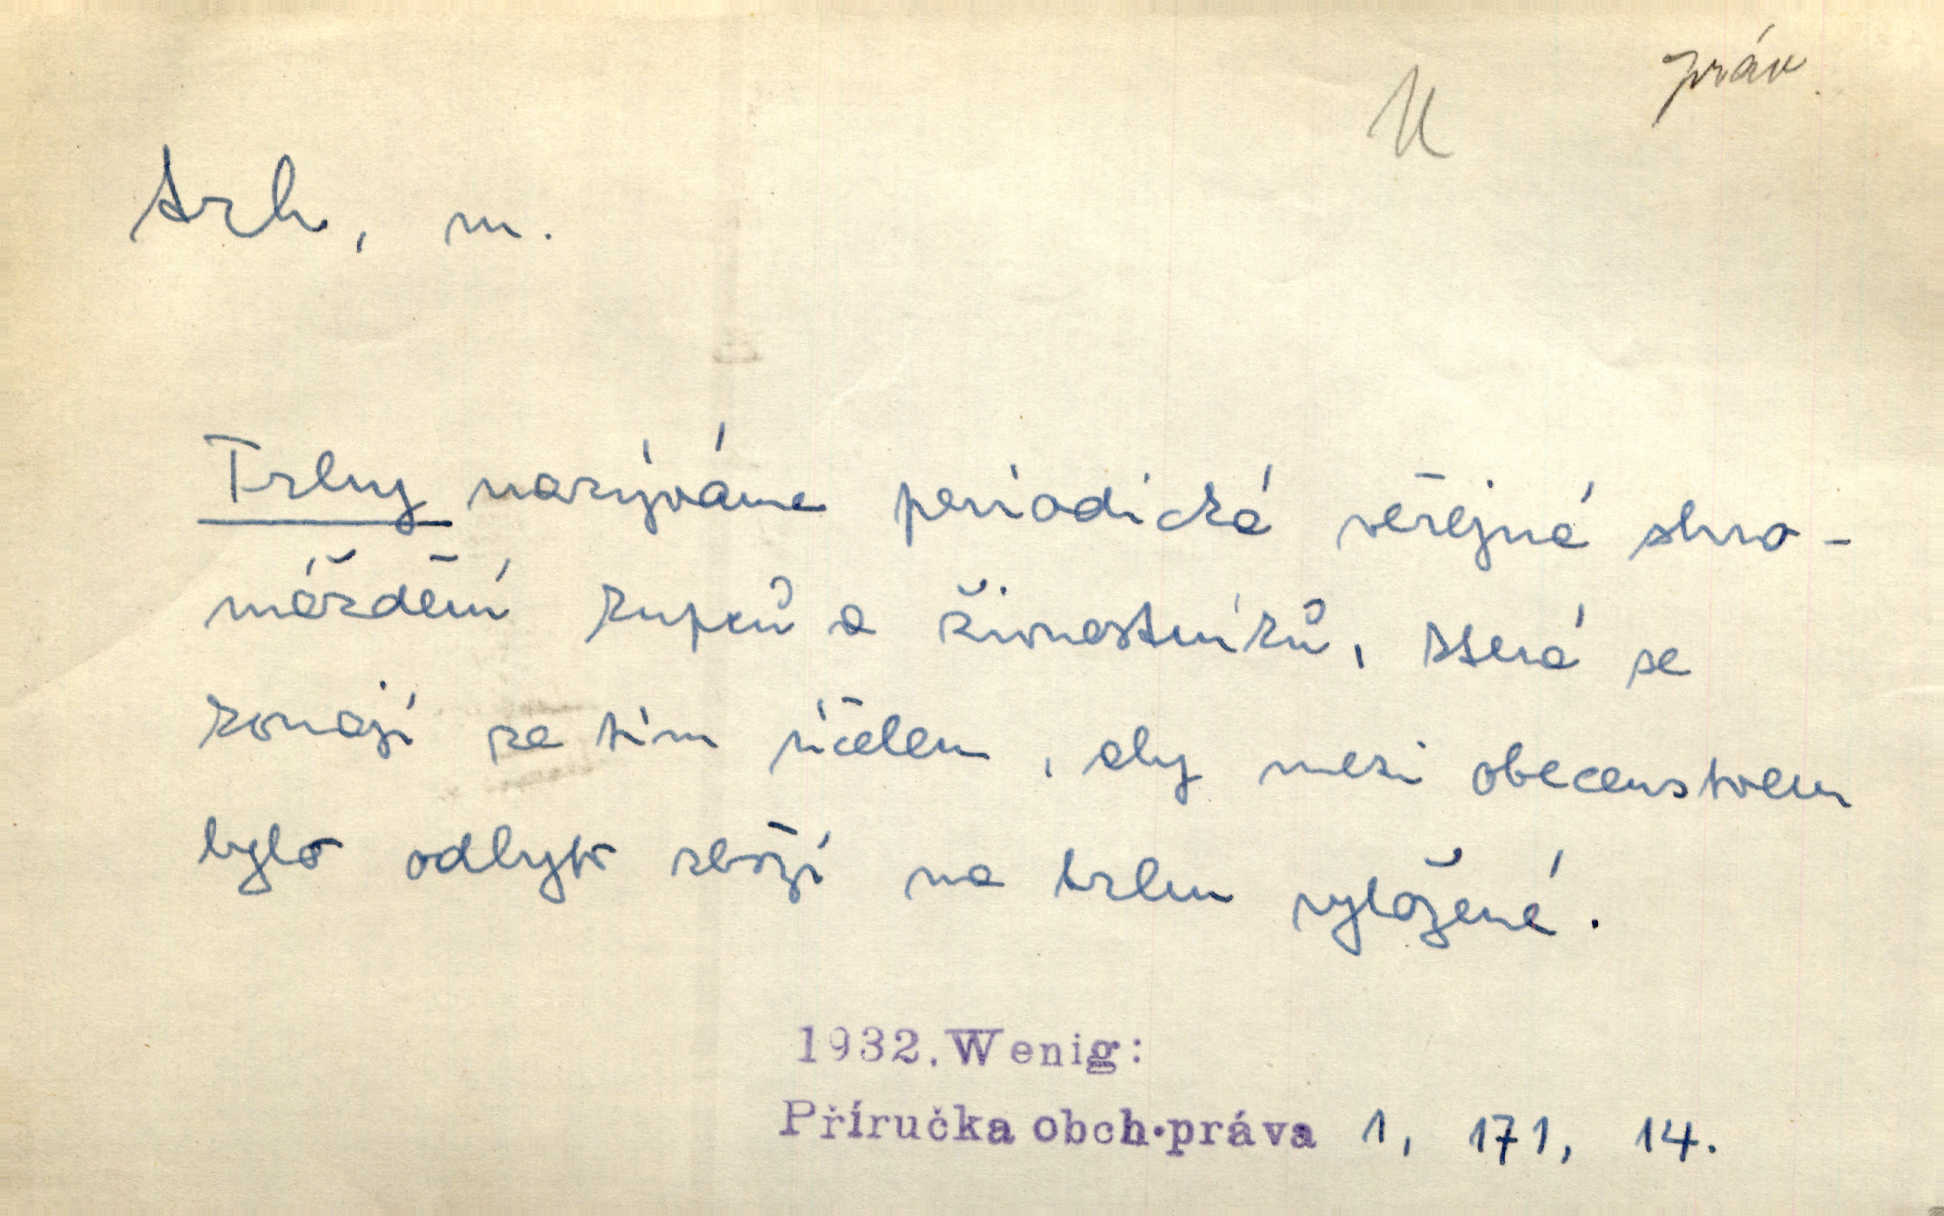 práv.
U
trh, m.
Trhy nazýváme periodické veřejné shro-
máždění kupců a živnostníků, které se
konají za tím účelem, aby mezi obecenstvem
bylo odbyto zboží na trhu vyložené.
1932. Wenig:
Příručka obch.práva 1, 171, 14.